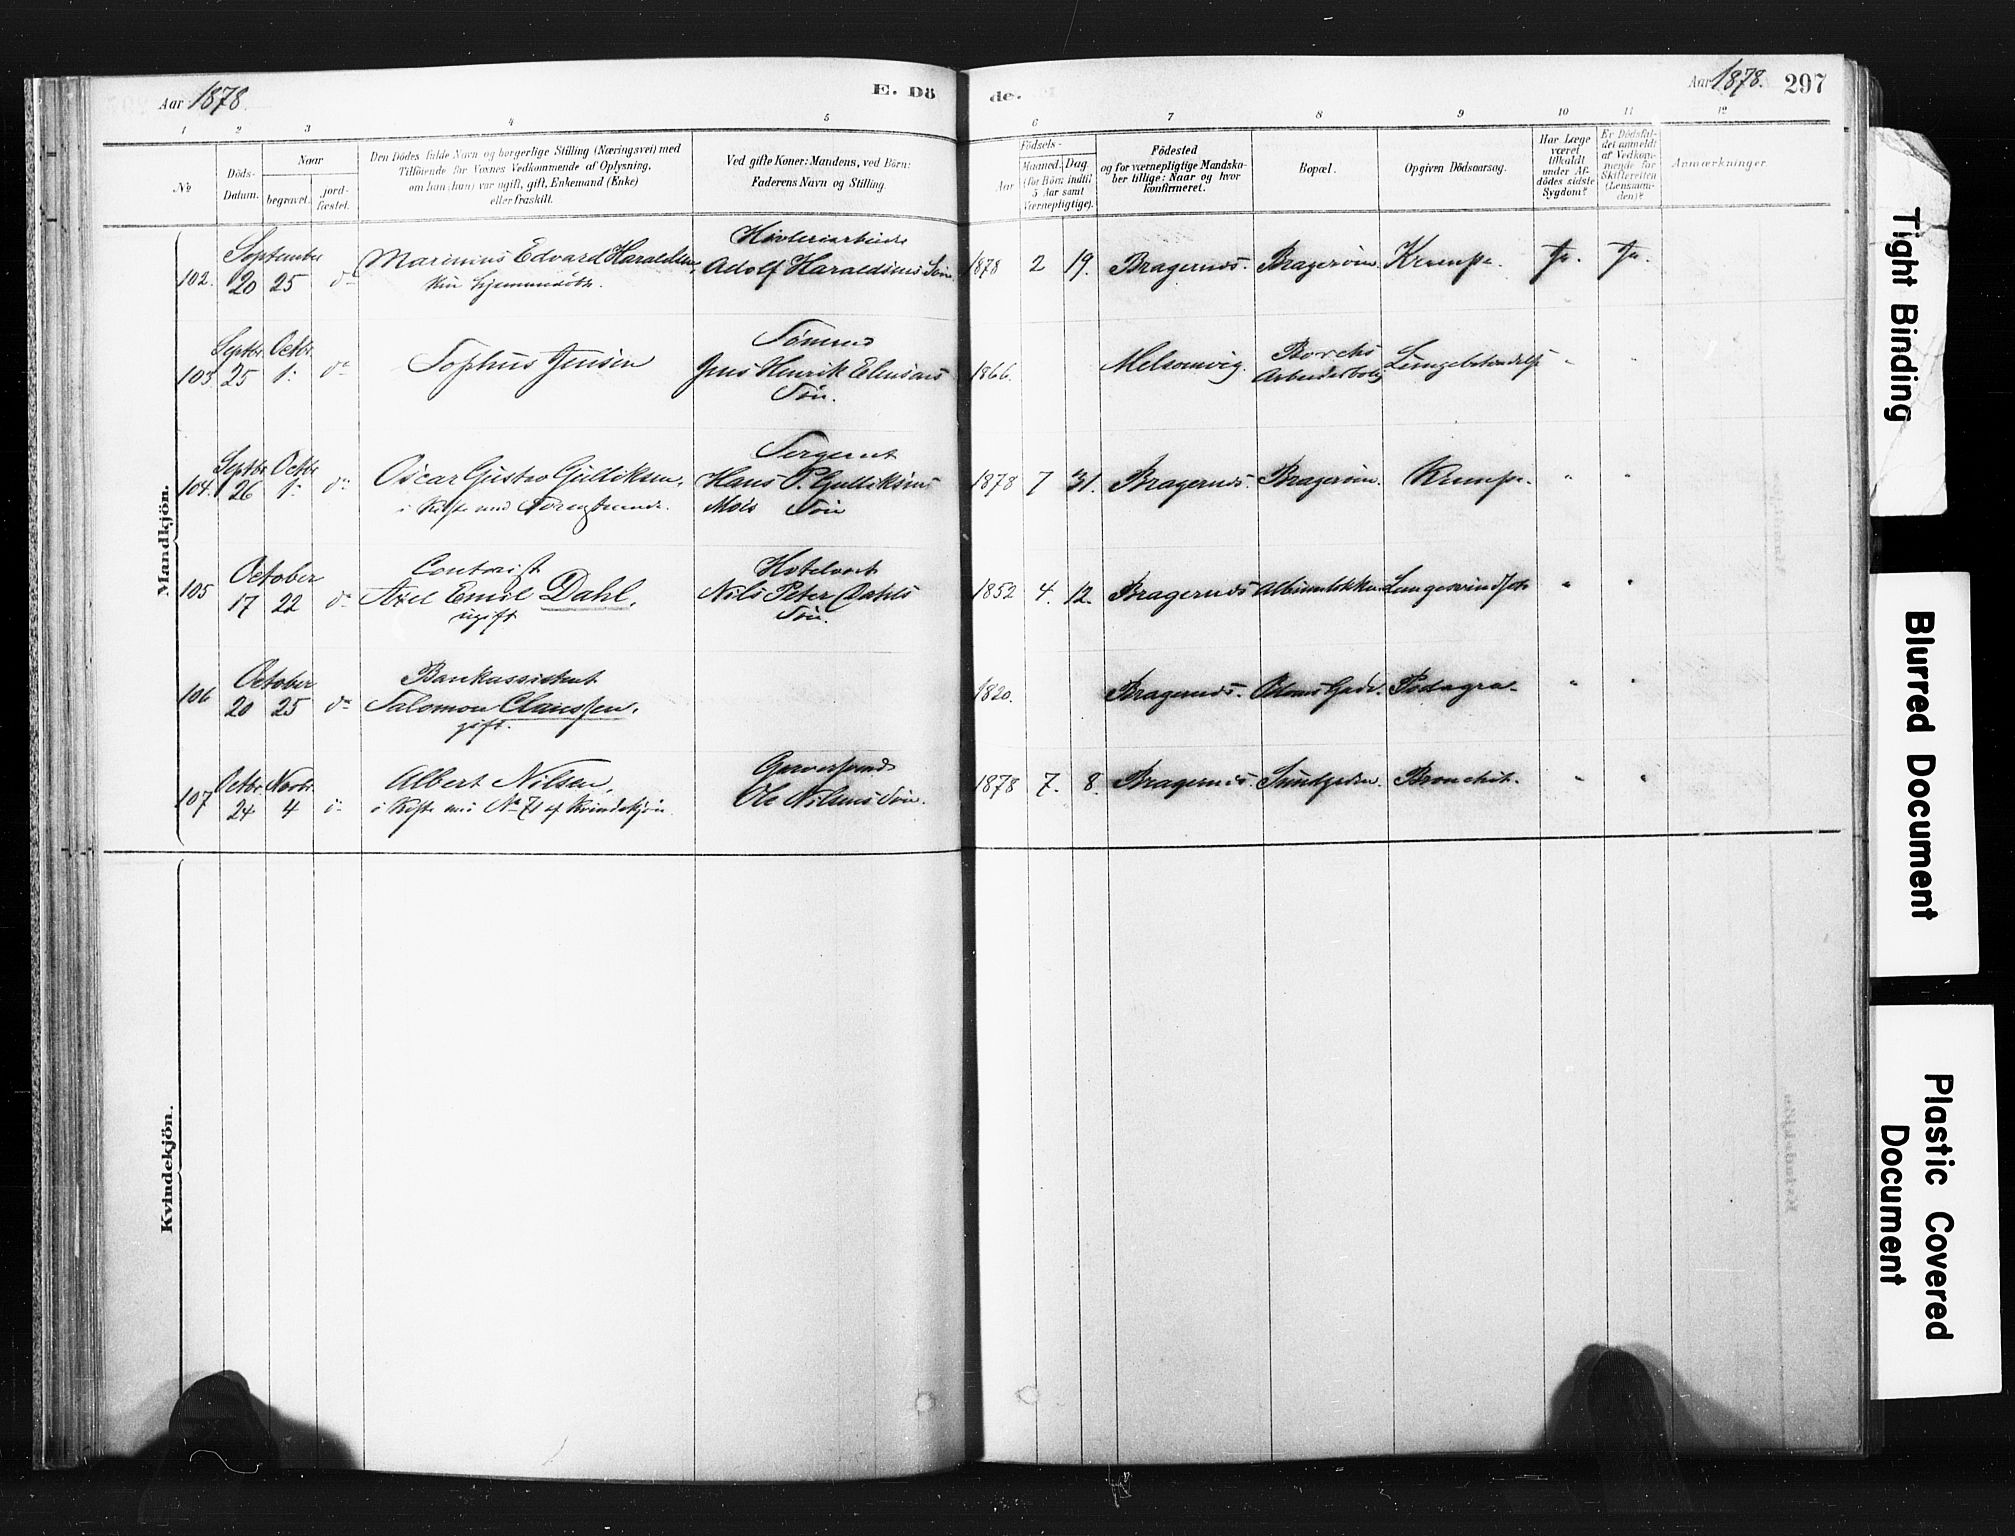 Aar 1878.
E. Dö
de.
Aar 1878. 297
1 2 3 4 5 6 7 8 9 10 11 12
No
Döds-
Datum.
Naar
begravet.
jord-
fæstet.
Den Dödes fulde Navn og borgerlige Stilling (Næringsvei) med
Tilföiende for Voxnes Vedkommende af Oplysning,
om han (hun) var ugift, gift, Enkemand (Enke)
eller fraskilt.
Ved gifte Koner: Mandens, ved Börn:
Faderens Navn og Stilling.
Födsels-
Aar
Maaned. Dag.
(for Börn indtil
5 Aar samt
Værnepligtige).
Födested
og for værnepligtige Mandska-
ber tillige: Naar og hvor
konfirmeret.
Bopæl.
Opgiven Dödsaarsag.
Har Læge
været
tilkaldt
under Af-
dödes sidste
Sygdom?
Er Dödsfal-
det anmeldt
af Vedkom-
mende for
Skifteretten
(Lensman-
den)?
Anmærkninger.
Mandkjön.
September
102. 20 25 do Marinius Edvard Haraldsen,
kun hjemmedöbt.
Høvleriarbeider
Adolf Haraldsens Søn.
1878 2 19. Bragernes. Bragerøen. Krampe. Ja. Ja.
Septbr. Octbr.
103 25 1: do Sophus Jensen
Sømand
Jens Henrik
Søn.
1866. Melsomvig. Borchs
Arbeiderbolig
Septbr Octbr
104. 26 1: do Oscar Gustav Gulliksen,
i Kiste med
Sergeant
Hans P. Gulliksens
Søn
1878 7 31. Bragernes. Bragerøen. Krampe. " "
October
105 17 22 do Contorist
Axel Emil Dahl,
ugift
Hotelvært
Nils Peter Dahls
Søn.
1852 4. 12. Bragernes Lungesvindsot " "
October
106 20 25 do Bankassistent
Salomon Claussen,
gift.
1820. Bragernes. Gade. Podagra. " "
Octbr. Novbr.
107 24 4 do Albert Nilsen,
i Kiste med No 71 af Kvindekjøn.
Garversvend
Ole Nilsens Søn.
1878 7. 8. Bragernes. Bronchit. " "
Kvindekjön.
Tight Binding
Blurred Document
Plastic Covered
Document